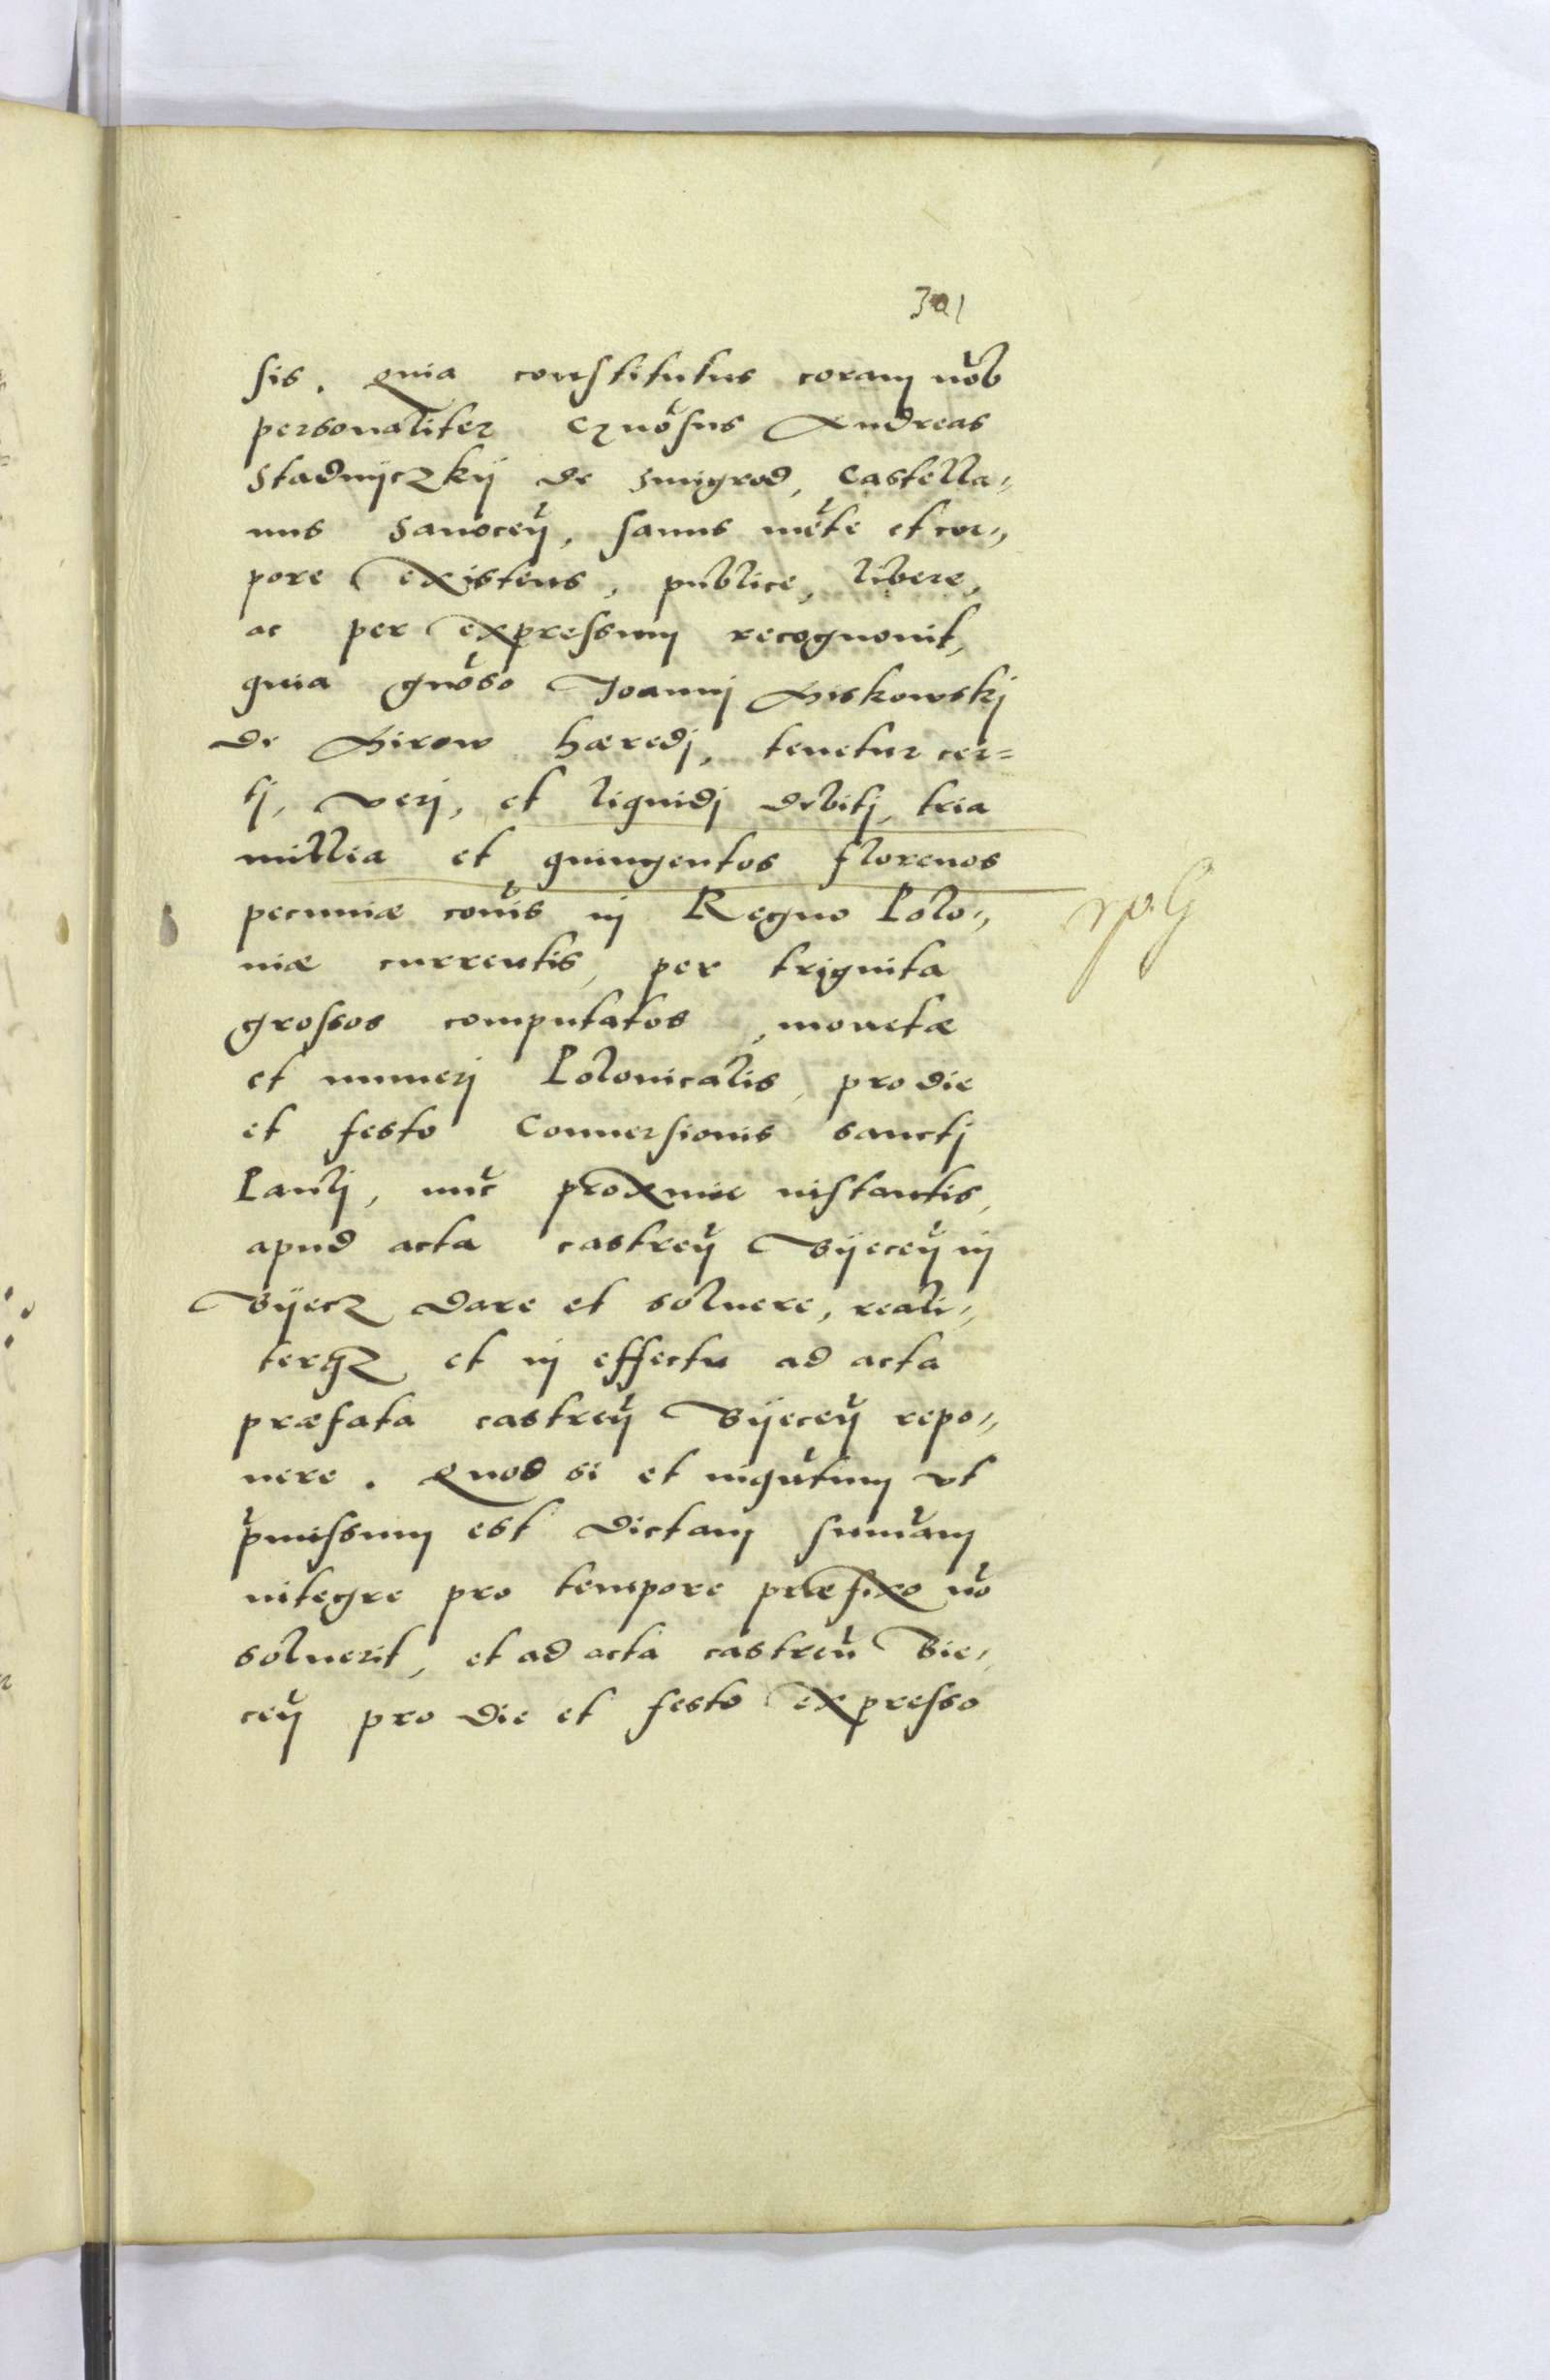 301
sis. Quia constitutus coram nob
personaliter Gnosus Andreas
Stadnyczky de Zmigrod, Castella„
nus Sanoceñ, sanus mēte et cor„
pore existens, publice, libere,
ac per expressum recognouit,
quia gnoso Joannj Hiskowskj
de Hirow hæredj, tenetur cer=
tj, verj, et liquidj debitj, tria
millia et quingentos florenos
pecuniæ cois in Regno Polo„
niæ currentis, per triginta
grossos computatos, monetæ
et numerj Polonicalis, pro die
et festo Conuersionis sanctj
Paulj, nuc proxime instantis,
apud acta castreñ Byeceñ in
Byecz dare et soluere, reali„
terqz et in effectu ad acta
præfata castreñ Byeceñ repo„
nere. Quod si et inqūtum vt
pmissum est dictam sumam
integre pro tempore præfixo no
soluerit, et ad acta castreñ Bie„
ceñ pro die et festo expresso